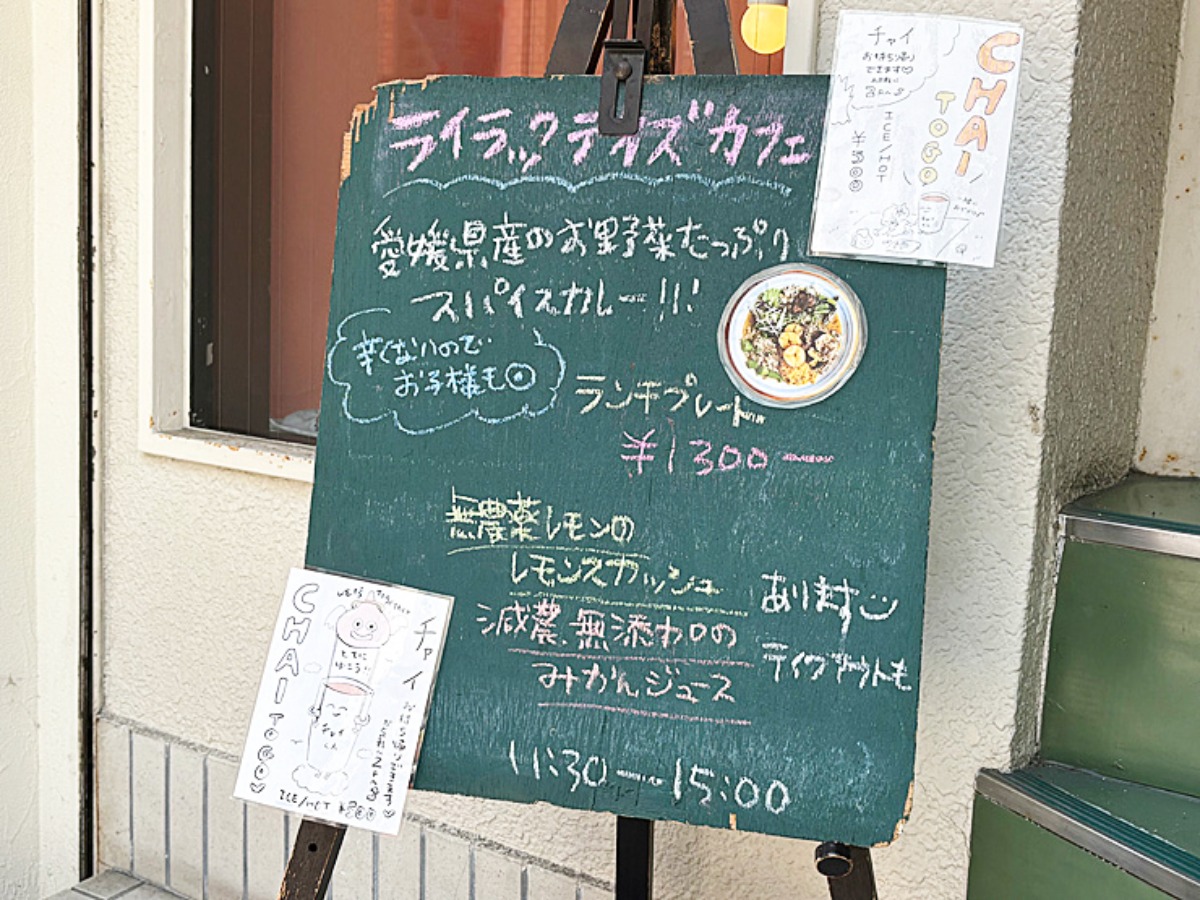 ライラックデイズカフェ
愛媛県産のお野菜たっぷり
スパイスカレー!!!
辛くないので
お子様も◎
ランチプレート
¥1300ー
無農薬レモンの
レモンスカッシュ
減農、無添加の
みかんジュース
あります
テイクアウトも
11:30〜15:00
チャイ
お持ち帰り
できます♡
CHAI
TOGO
ICE/HOT
¥500
CHAI TO GO
チャイ
ICE/HOT